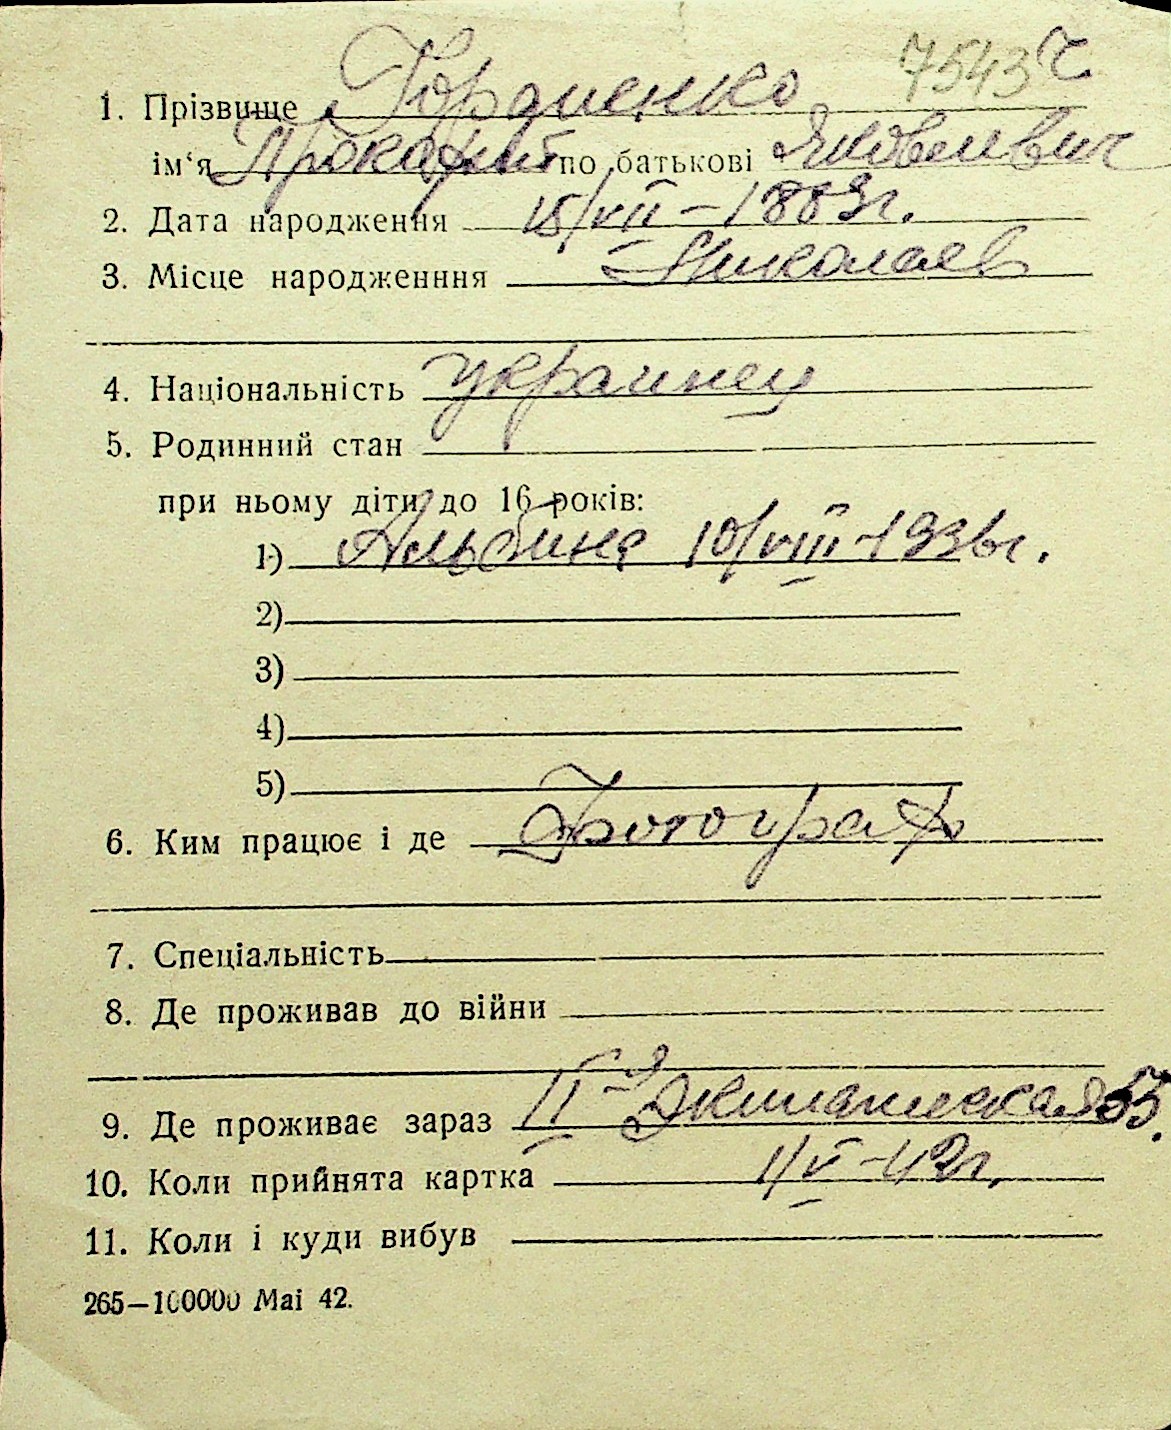 7543 с
1. Прізвище Гордиенко
ім‘я Прокофий по батькові Яковлевич
2. Дата народження 15/VII – 1883г.
3. Місце народженння Николаев
4. Національність украинец
5. Родинний стан
при ньому діти до 16 років:
1) Альбина 10/VIII – 1936г.
2)
3)
4)
5)
6. Ким працює і де Фотограф
7. Спеціальність
8. Де проживав до війни
9. Де проживає зараз II-я 53.
10. Коли прийнята картка 1/V – 42г.
11. Коли і куди вибув
265—100000 Маі 42.